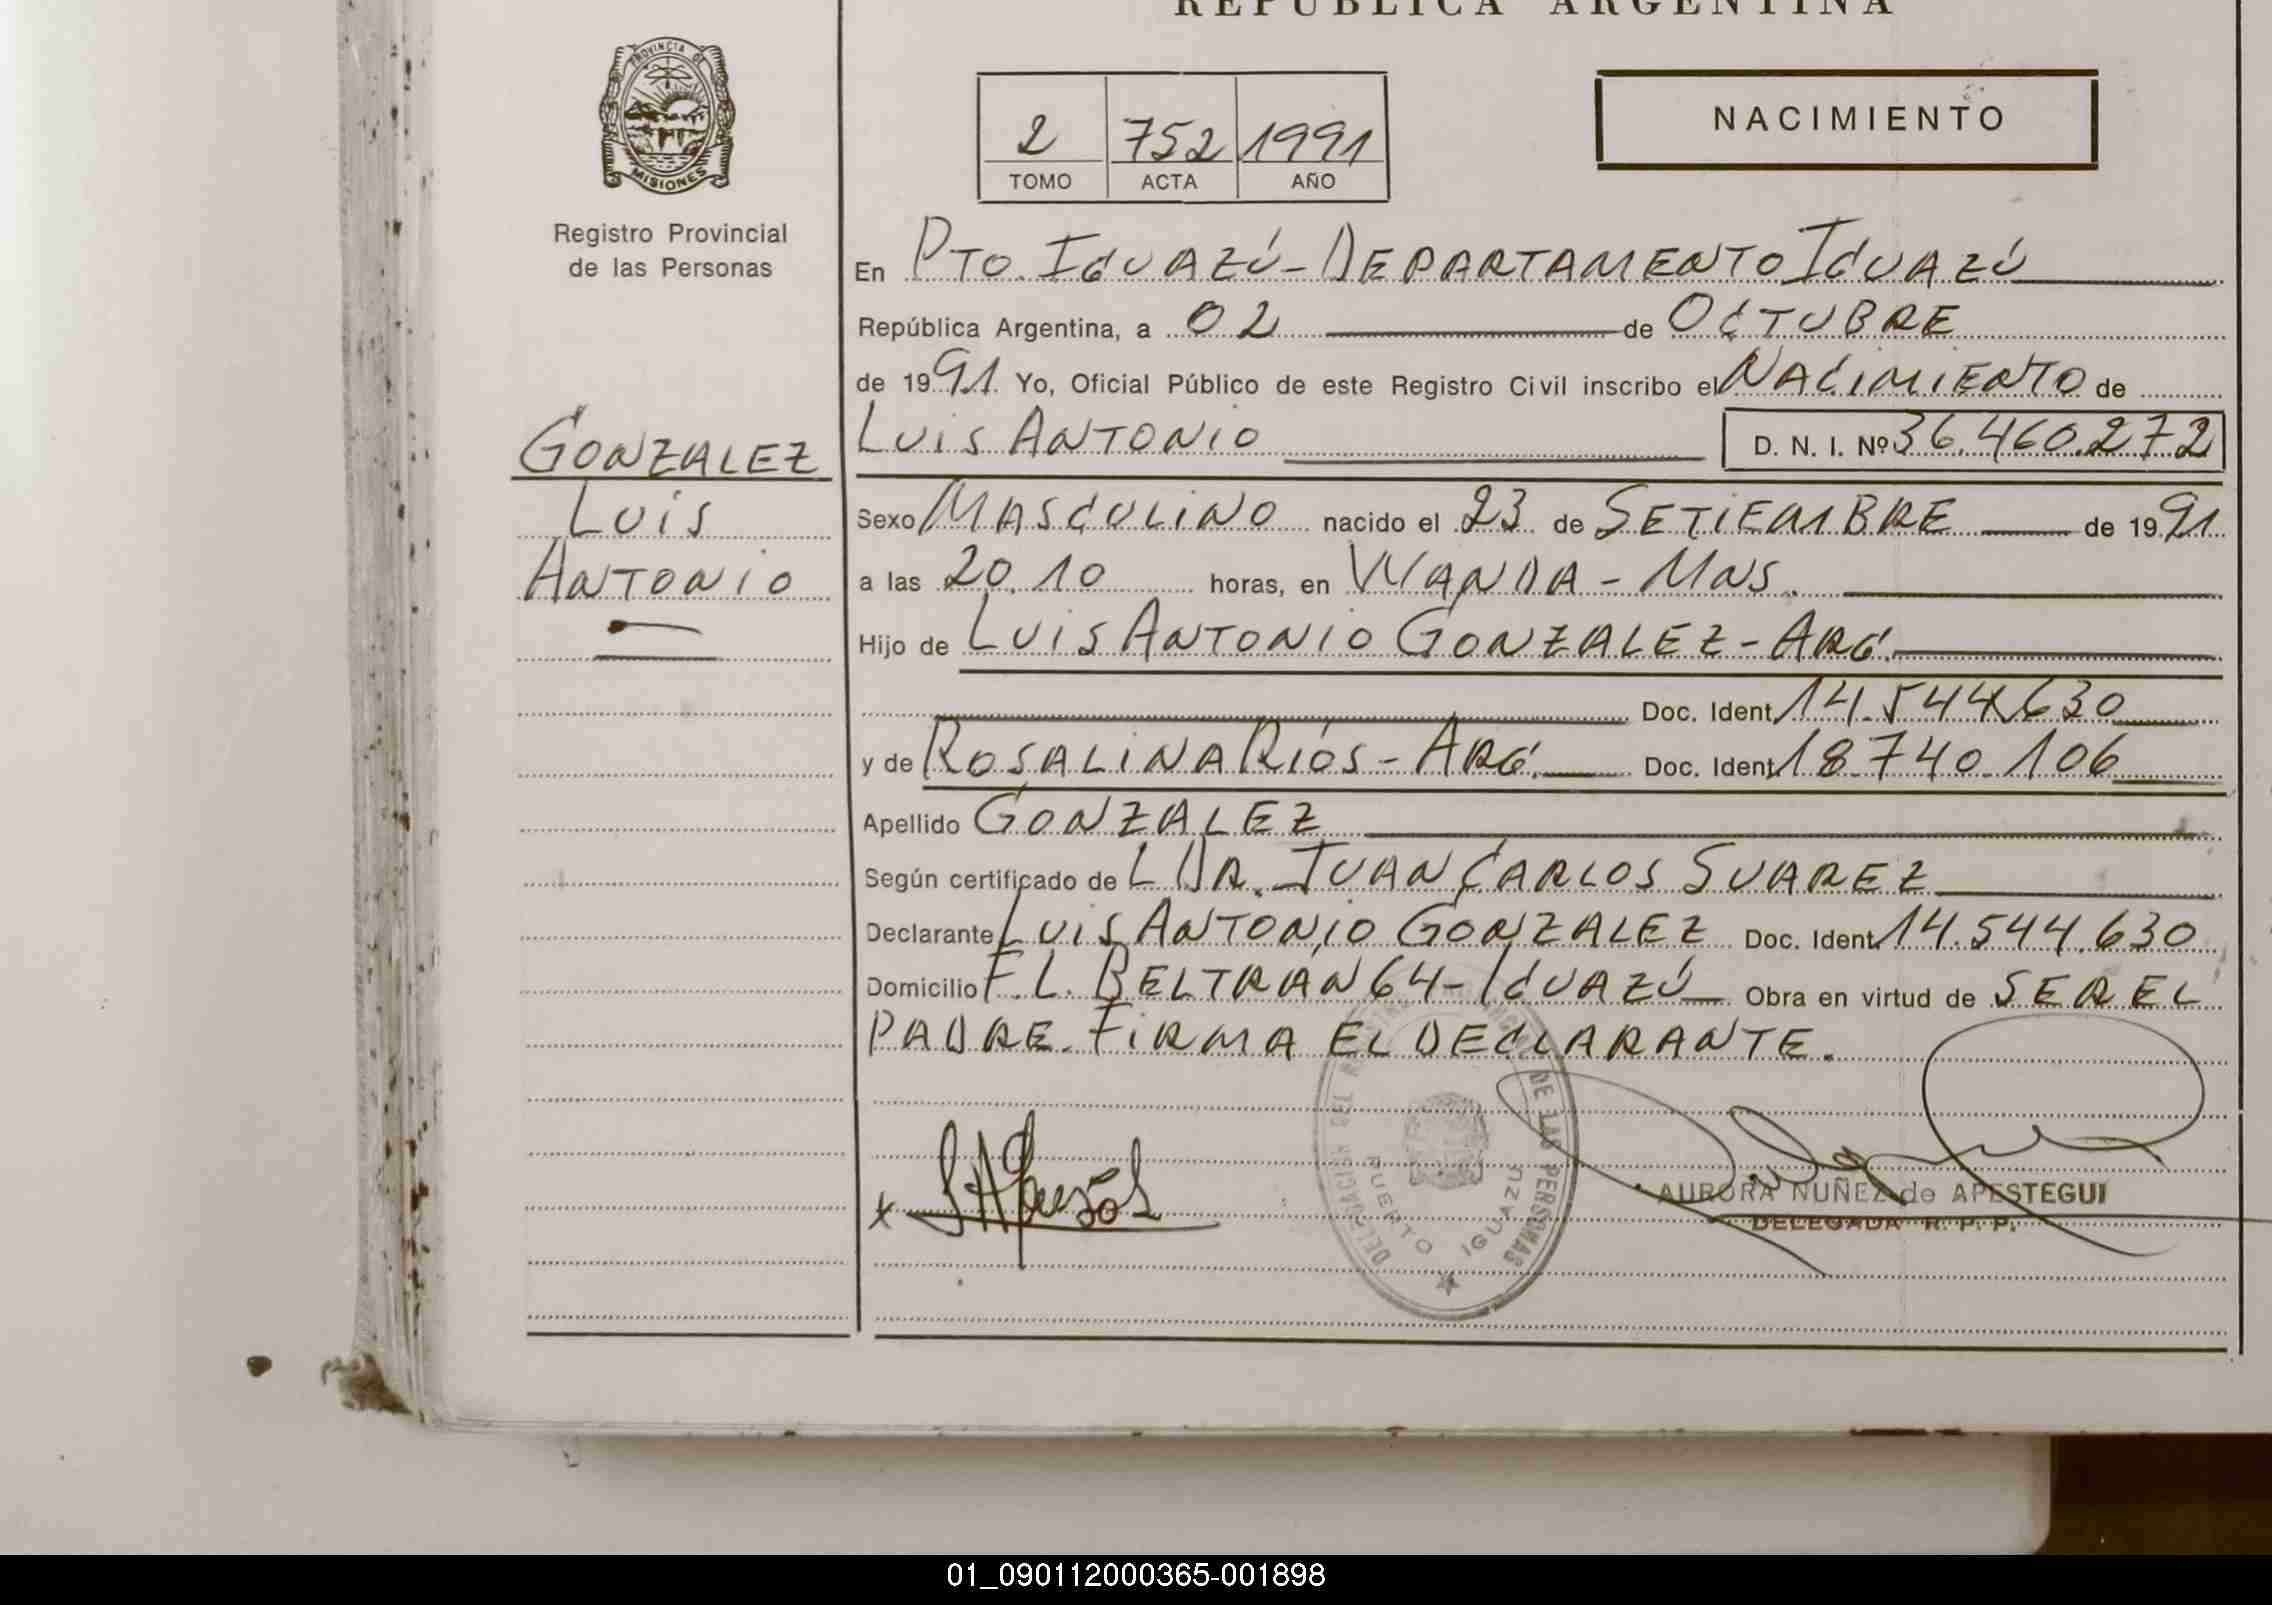 REPUBLICA ARGENTINA
PROVINCIA DE
MISIONES
Registro Provincial
de las Personas
2 752 1991
TOMO ACTA AÑO
NACIMIENTO
En PTO. IGUAZÚ - DEPARTAMENTO IGUAZÚ
República Argentina, a 02 de OCTUBRE
de 1991 Yo, Oficial Público de este Registro Civil inscribo el NACIMIENTO de
LUIS ANTONIO D. N. I. Nº 36.460.272
GONZALEZ
LUIS
ANTONIO
Sexo MASCULINO nacido el 23 de SETIEMBRE de 1991
a las 20.10 horas, en WANDA - MNS.
Hijo de LUIS ANTONIO GONZALEZ - ARG.
Doc. Ident. 14.544.630
y de ROSALINA RÍOS - ARG. Doc. Ident. 18.740.106
Apellido GONZALEZ
Según certificado de L DR. JUAN CARLOS SUAREZ
Declarante LUIS ANTONIO GONZALEZ Doc. Ident. 14.544.630
Domicilio F. L. BELTRÁN 64 - IGUAZÚ Obra en virtud de SER EL
PADRE. FIRMA EL DECLARANTE.
DE LAS PERSONAS
PUERTO IGUAZU
AURORA NUÑEZ de APESTEGUI
DELEGADA R. P. P.
01_090112000365-001898